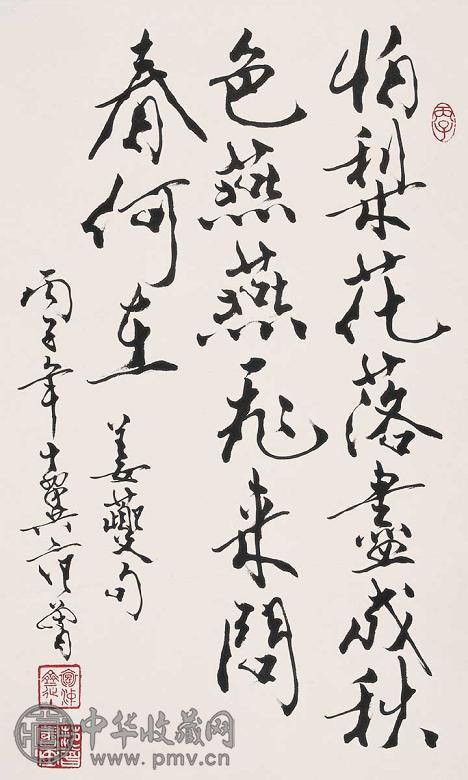 怕梨花落盡成秋
色燕燕飛來問
春何在
姜夔句
丙子年十翼范曾
丙子
中华收藏网
www.pmv.cn